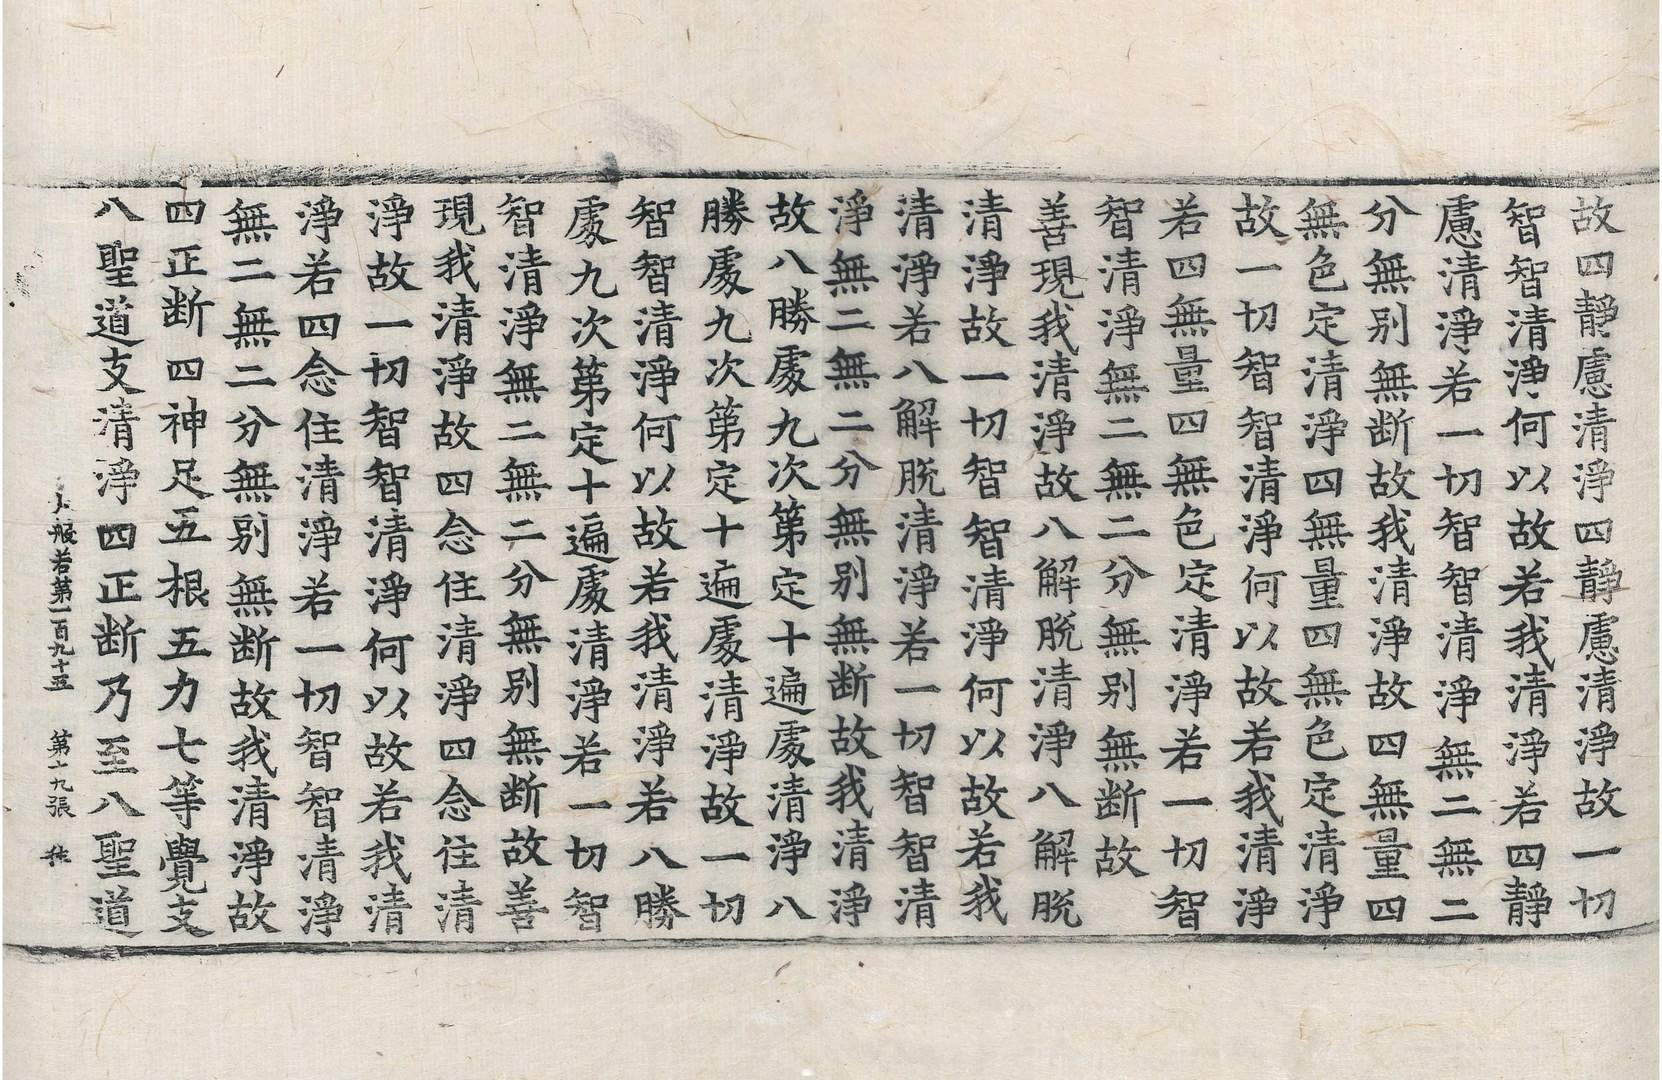 故四靜慮清淨四靜慮清淨故一切
智智清淨何以故若我清淨若四靜
慮清淨若一切智智清淨無二無二
分無別無断故我清淨故四無量四
無色定清淨四無量四無色定清淨
故一切智智清淨何以故若我清淨
若四無量四無色定清淨若一切智
智清淨無二無二分無別無断故
善現我清淨故八解脫清淨八解脫
清淨故一切智智清淨何以故若我
清淨若八解脫清淨若一切智智清
淨無二無二分無別無断故我清淨
故八勝處九次第定十遍處清淨八
勝處九次第定十遍處清淨故一切
智智清淨何以故若我清淨若八勝
處九次第定十遍處清淨若一切智
智清淨無二無二分無別無断故善
現我清淨故四念住清淨四念住清
淨故一切智智清淨何以故若我清
淨若四念住清淨若一切智智清淨
無二無二分無別無断故我清淨故
四正断四神足五根五力七等覺支
八聖道支清淨四正断乃至八聖道
大般若第一百九十五 第十九張